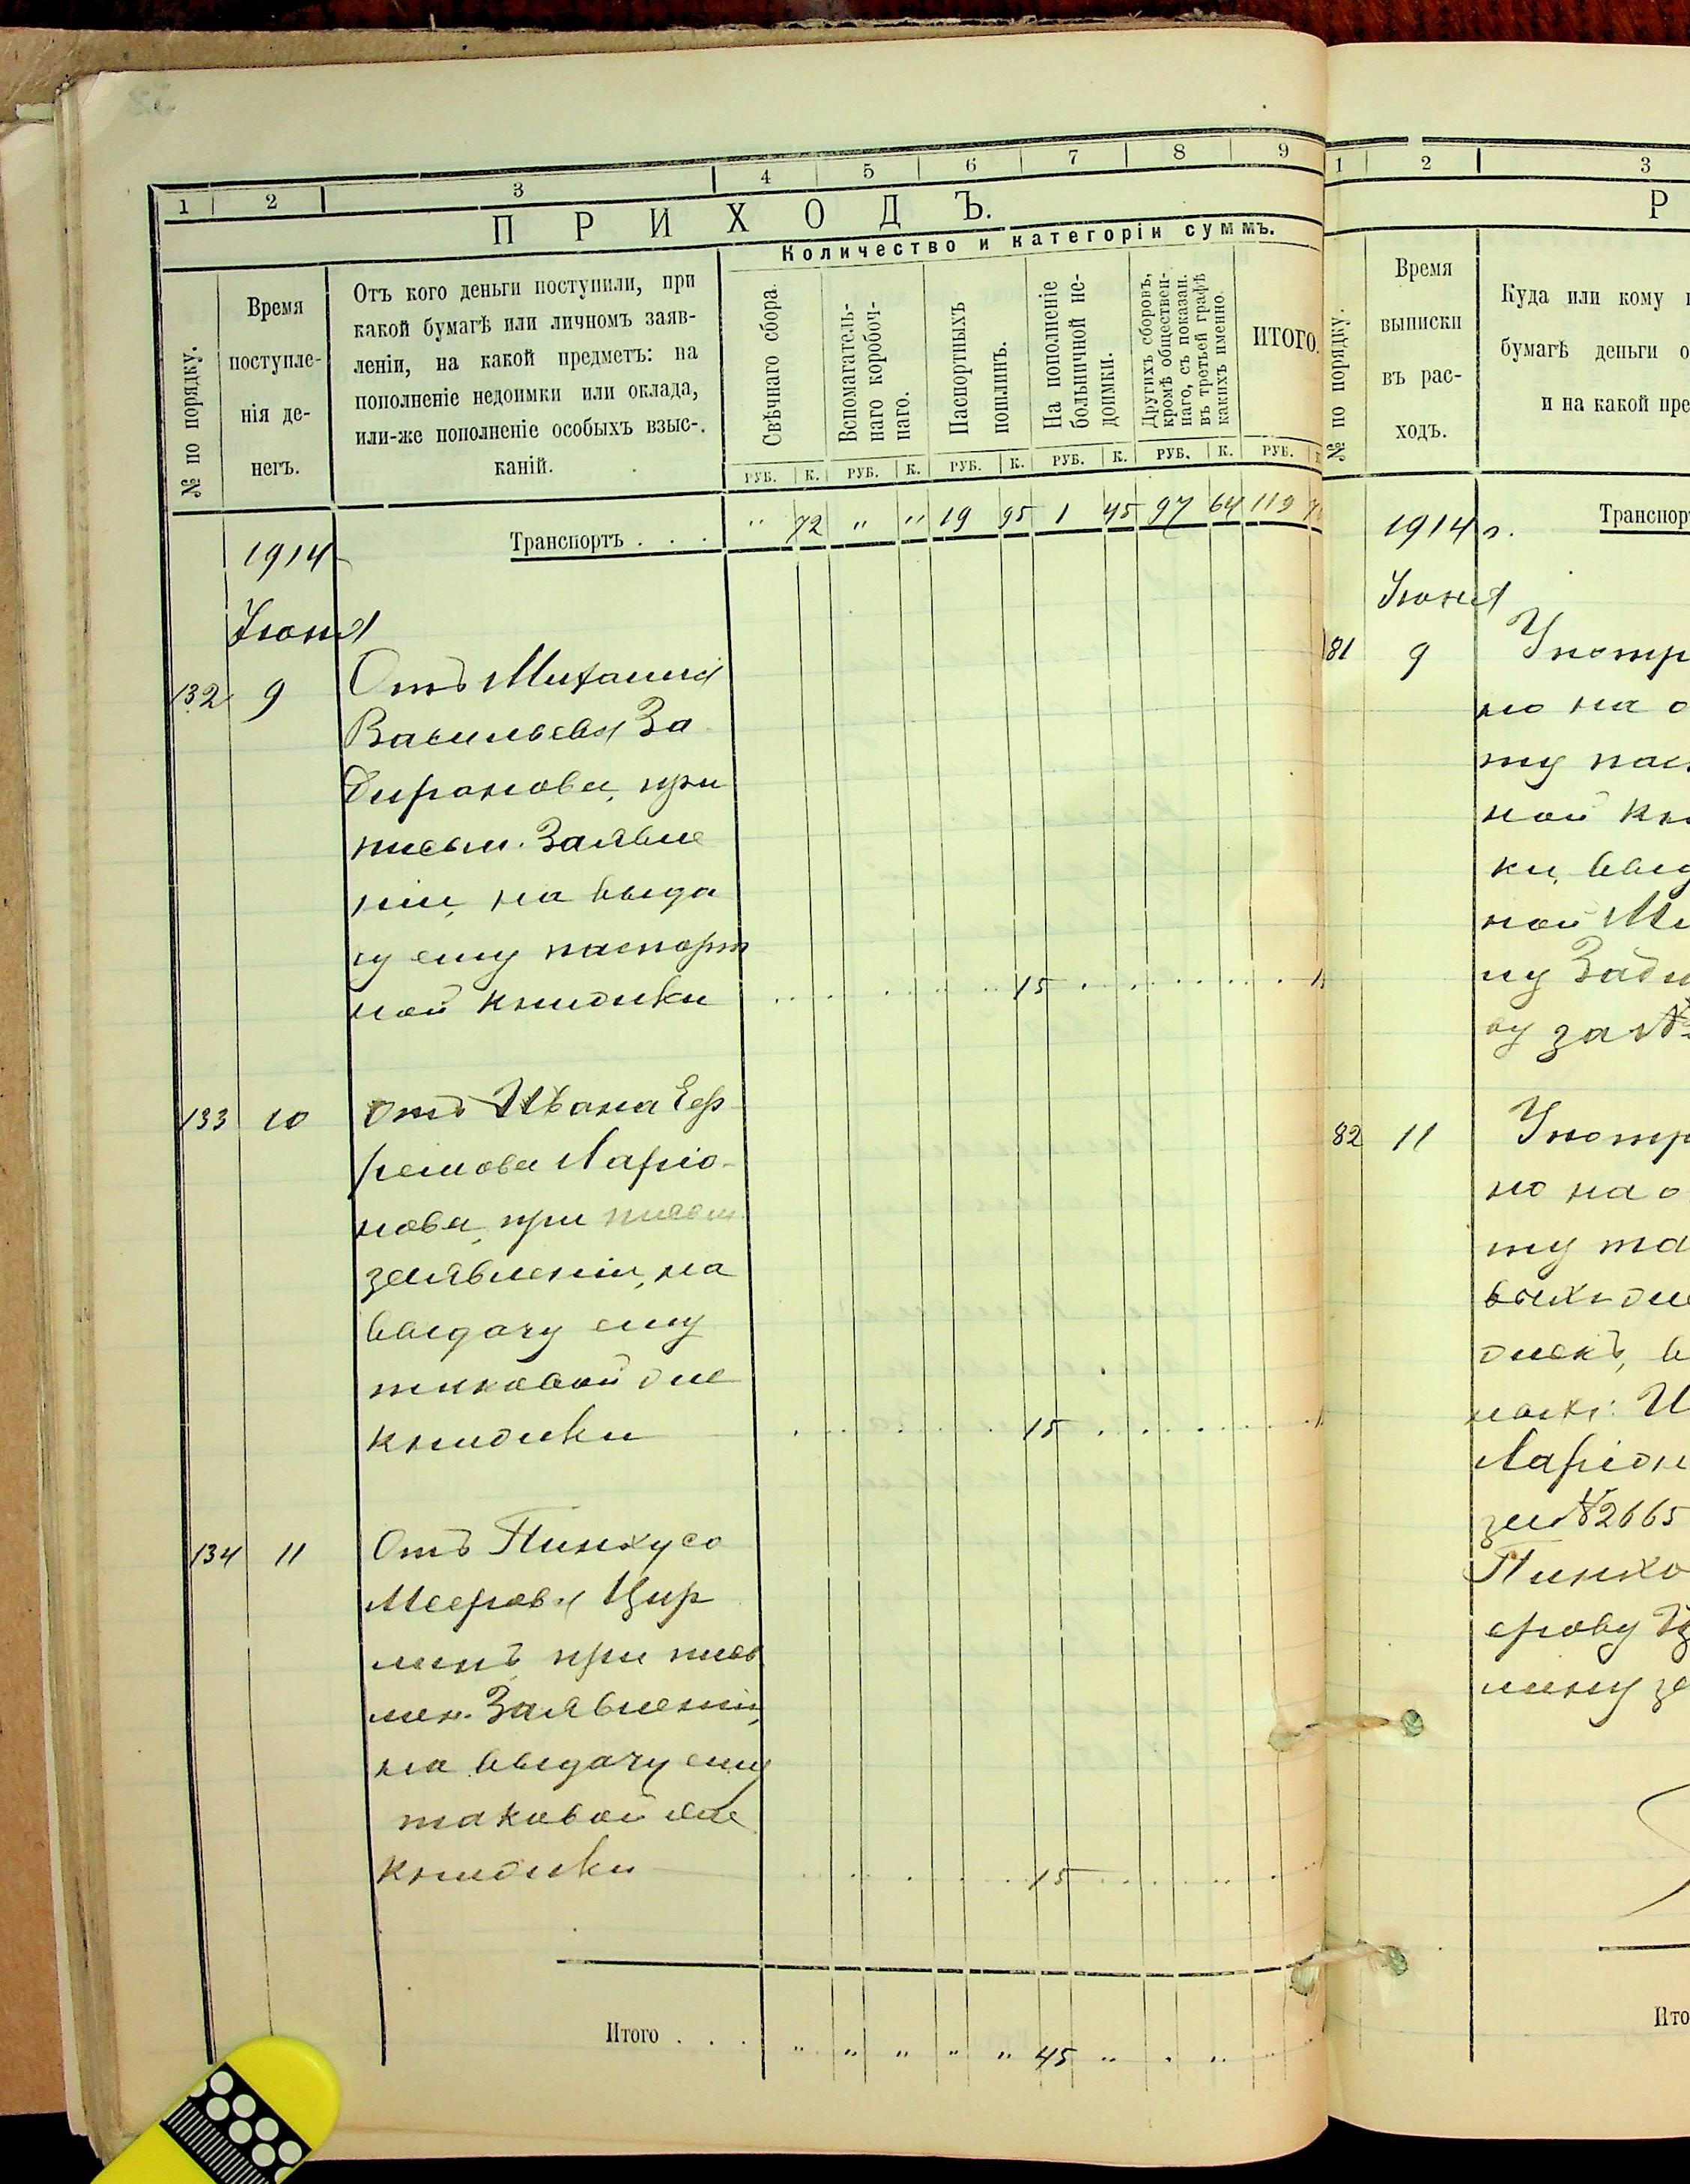 1 2 3 4 5 6 7 8 9
ПРИХОДЪ.
Количество и категоріи суммъ.
№ по порядку.
Время
поступле-
нія де-
негъ.
Отъ кого деньги поступили, при
какой бумагѣ или личномъ заяв-
леніи, на какой предметъ: на
пополненіе недоимки или оклада,
или-же пополненіе особыхъ взыс-
каній.
Свѣчнаго сбора.
Вспомагатель-
наго коробоч-
наго.
Паспортныхъ
пошлинъ.
На пополненіе
больничной не-
доимки.
Другихъ сборовъ,
кромѣ обществен-
наго, съ показан.
въ третьей графѣ
какихъ именно.
ИТОГО.
РУБ. К. РУБ. К. РУБ. К. РУБ. К. РУБ. К. РУБ.
Транспортъ . . . " 72 " " 19 95 1 45 97 64 119
1914
Іюня
132 9 Отъ Михаила
Васильева За
диранова, при
письм. Заявле
ніи, на выда
чу ему паспорт
ной книжки 15
133 10 Отъ Ивана Еф
ремова Ларіо-
нова, при письм.
заявленіи, на
выдачу ему
таковой же
книжки 15
134 11 Отъ Пинхуса
Меерова Цир
линъ при пись
мен. Заявленіи,
на выдачу ему
таковой же
книжки 15
Итого . . . " " " " " 45 " " "
1 2 3
Р
№ по порядку.
Время
выписки
въ рас-
ходъ.
Куда или кому
бумагѣ деньги о
и на какой пре
Транспор
1914 г.
Іюня
81 9 Употр
но на о
ту пас
ной кн
ки, выд
ной Ми
лу Зади
ву за №
82 11 Употр
но на о
ту та
выхъ же
жекъ, в
Ларіон
за №2665
Пинхо
ерову Ц
лину за
Ито